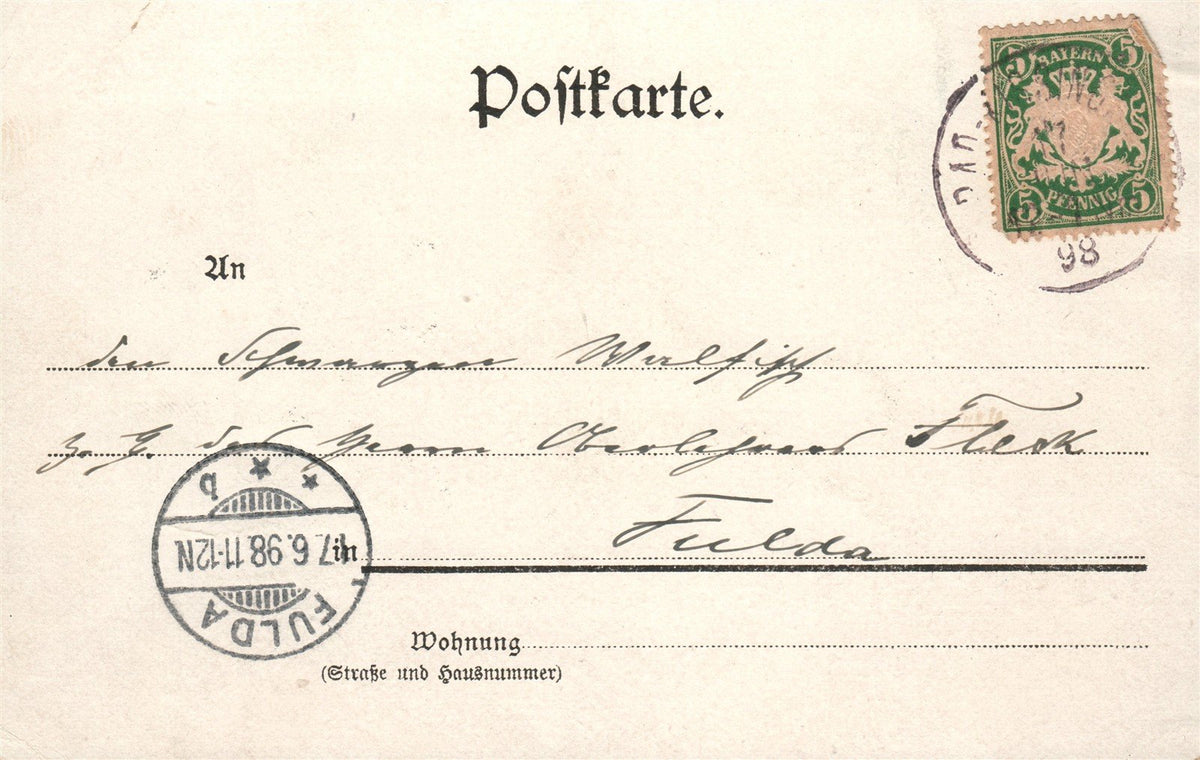 Postkarte.
5 BAYERN 5
5 PFENNIG 5
98
An
den Schwarzen Walfisch
z. H. des Herrn Oberlehrers Fleck
in Fulda
b
7.6.98.11-12N
FULDA
Wohnung
(Straße und Hausnummer)